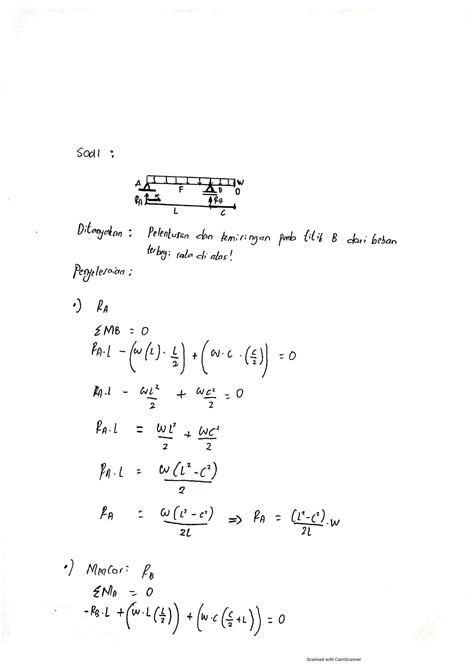 Soal :
A F B W
D
RA x RB
L C
Ditanyakan : Pelenturan dan kemiringan pada titik B dari beban
terbagi rata di atas!
Penyelesaian :
•) RA
ΣMB = 0
RA.L - (W(L) . L/2) + (W.C . (C/2)) = 0
RA.L - WL²/2 + WC²/2 = 0
RA.L = WL²/2 + WC²/2
RA.L = W(L²-C²)/2
RA = W(L²-C²)/2L ⇒ RA = (L²-C²)/2L . W
•) Mencari RB
ΣMA = 0
-RB.L + (W.L(L/2)) + (W.C(C/2+L)) = 0
Scanned with CamScanner